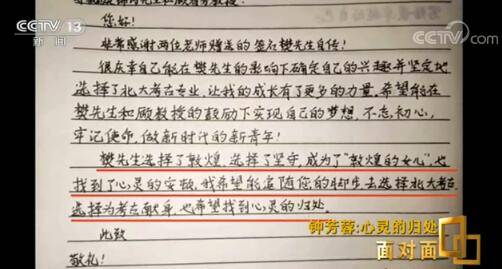 CCTV 13
新闻
CCTV.
com
您好!
非常感谢两位老师赠送的签名书和樊先生自传!
很庆幸自己能在樊先生的影响下确定自己的兴趣并坚定地
选择了北大考古专业,让我的成长有了更多的力量。希望能在
樊先生和顾教授的鼓励下实现自己的梦想,不忘初心,
牢记使命,做新时代的新青年!
樊先生选择了敦煌,选择了坚守,成为了"敦煌的女儿",也
找到了心灵的安放。我希望能追随您的脚步去选择北大考古
选择为考古献身,也希望找到心灵的归处。
此致
敬礼!
钟芳蓉:心灵的归处
面对面